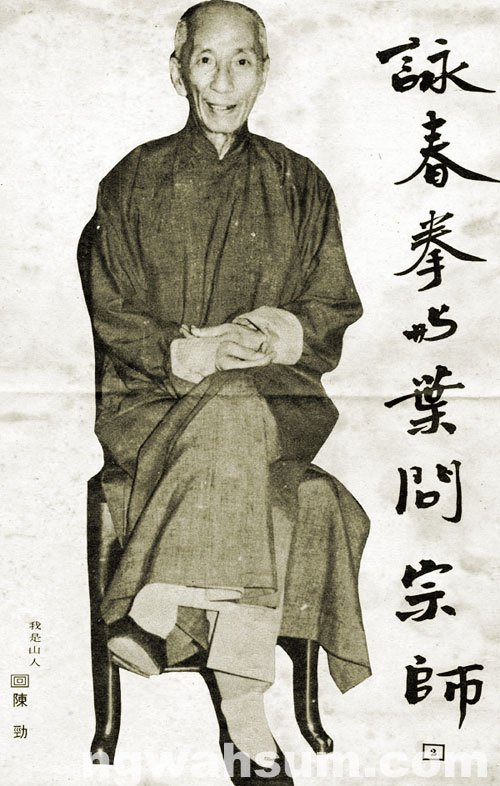 詠春拳与葉問宗師
2
我是山人
回陳勁
ngwahsum.com